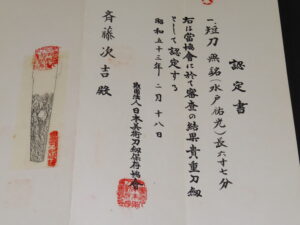 認定書
一、短刀 無銘(水戸祐光)長六寸七分
右は当協會に於て審査の結果貴重刀剣
として認定する
昭和五十三年二月十八日
財団法人日本美術刀剣保存協會
斉藤次吉殿